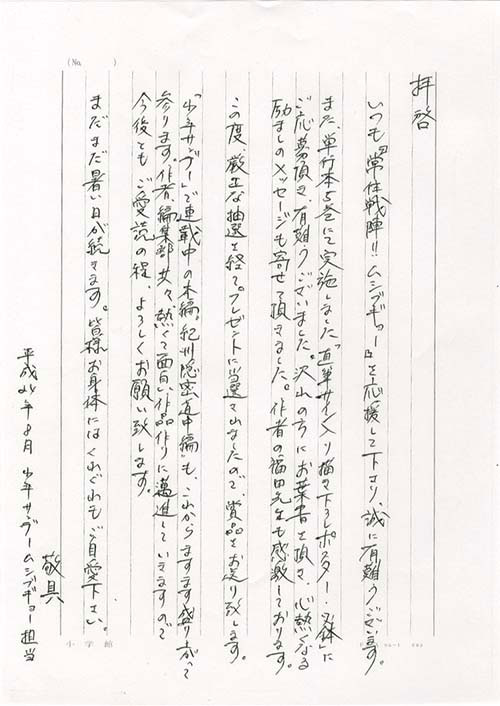 (No.　　)
拝啓
いつも『常住戦陣!!ムシブギョー』を応援して下さり、誠に有難うございます。
また、単行本5巻にて実施しました「直筆サイン入り描き下ろしポスター・又は」に
ご応募頂き、有難うございました。沢山の方にお葉書を頂き、心熱くなる
励ましのメッセージも寄せて頂きました。作者の福田先生も感激しております。
この度、厳正な抽選を経て、プレゼントに当選されましたので、賞品をお送り致します。
「少年サンデー」で連載中の本編"紀州隠密道中編"も、これからますます盛り上がって
参ります。作者、編集部共々、熱くて面白い作品作りに邁進していきますので
今後ともご愛読の程、よろしくお願い致します。
まだまだ暑い日が続きます。皆様お身体にはくれぐれもご自愛下さい。
敬具
平成24年8月 少年サンデー ムシブギョー担当
小学館